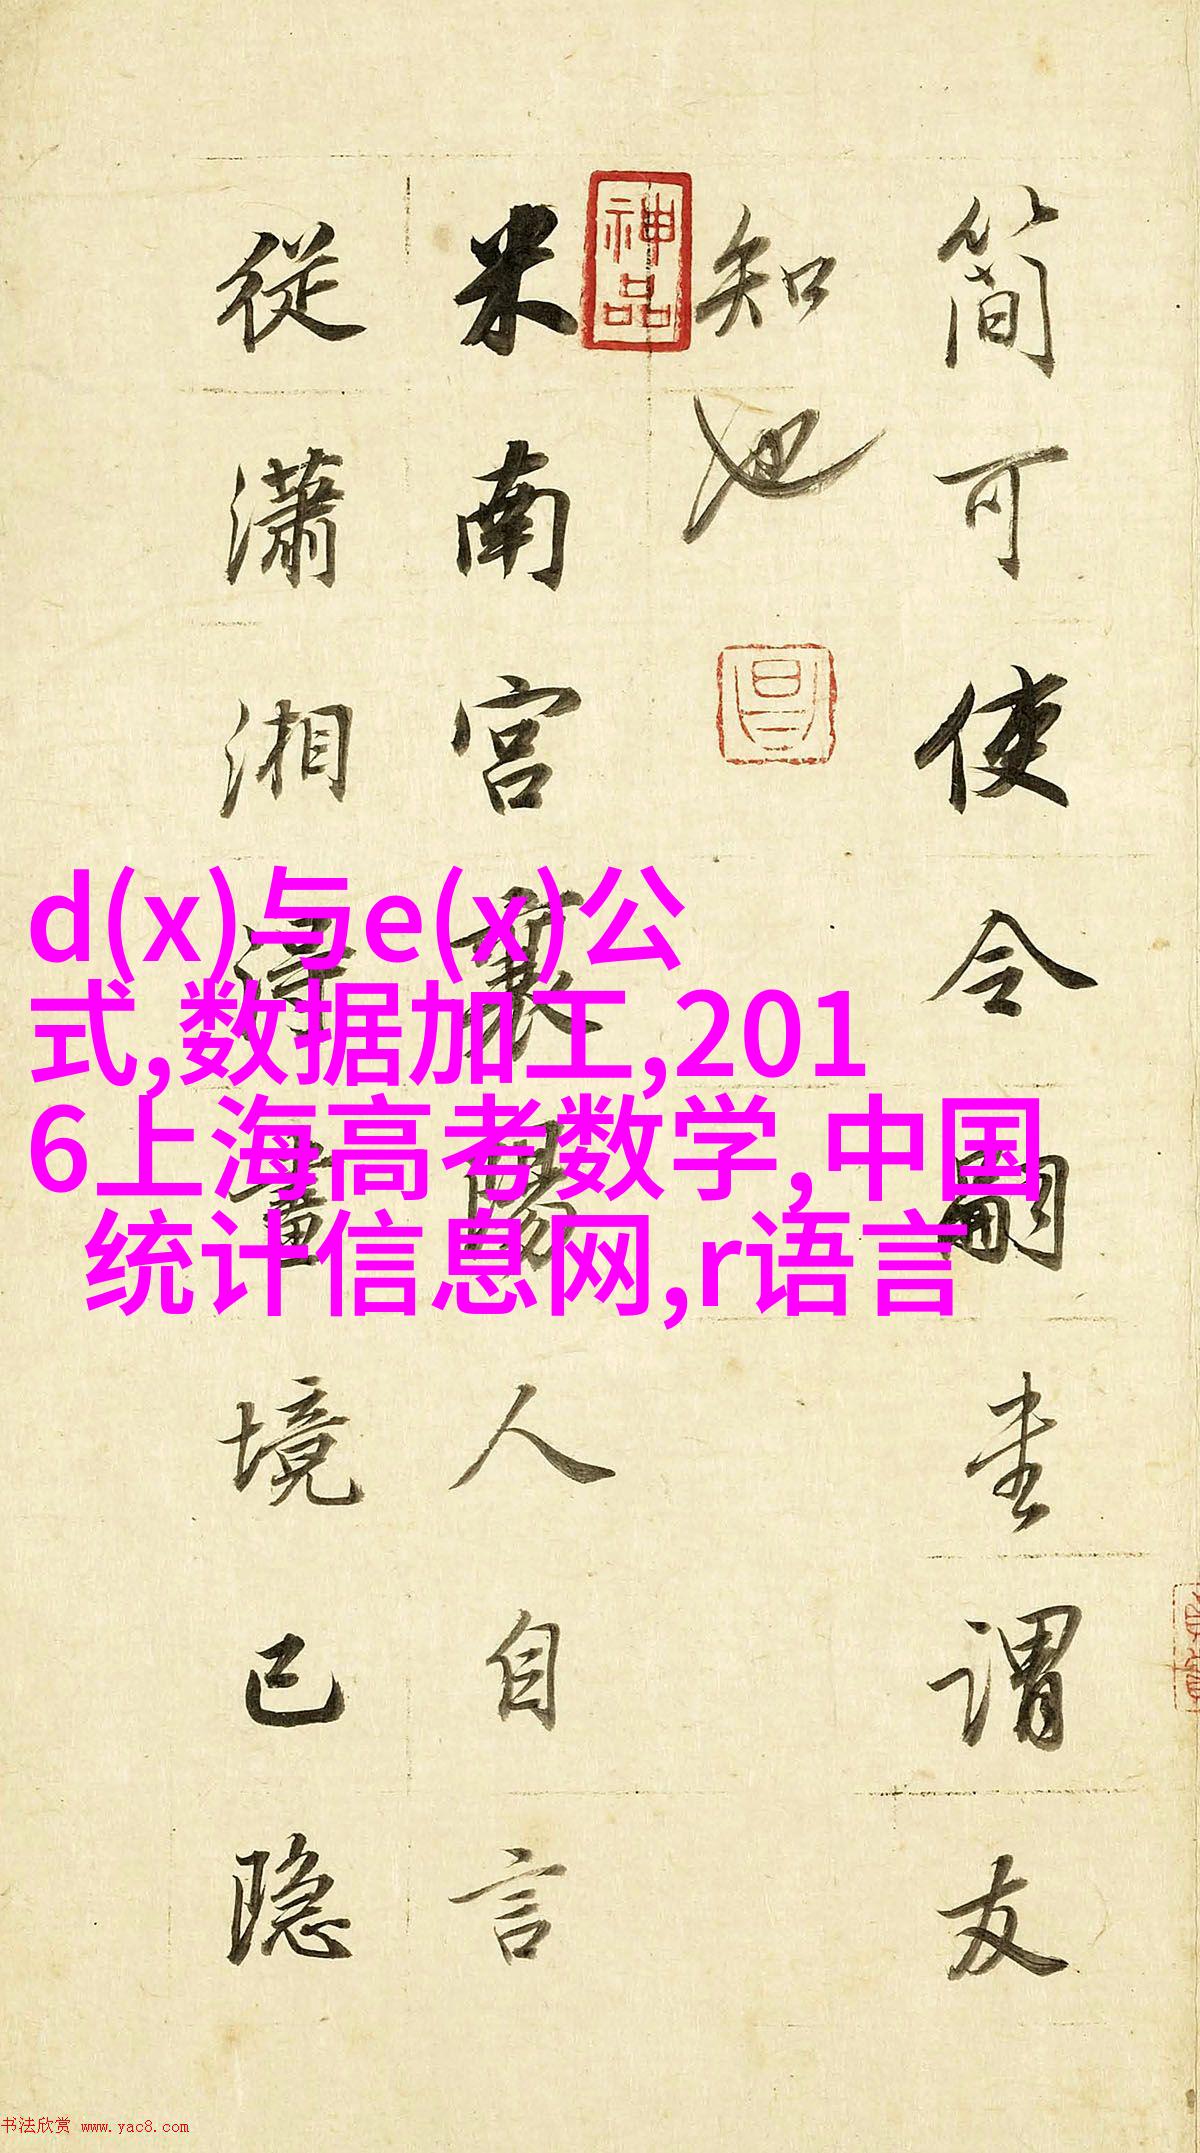 簡可使令嗣謂友
知也
神品
米南宮襄陽人自言
從瀟湘得畫境已隐
d(x)与e(x)公
式,数据加工,201
6上海高考数学,中国
统计信息网,r语言
书法欣赏 www.yac8.com